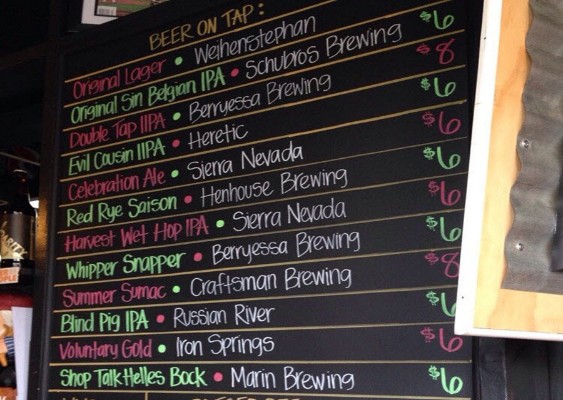 BEER ON TAP:
Original Lager • Weihenstephan
Original Sin Belgian IPA • Schubros Brewing $6
Double Tap IIPA • Berryessa Brewing $8
Evil Cousin IIPA • Heretic $6
Celebration Ale • Sierra Nevada $6
Red Rye Saison • Henhouse Brewing $6
Harvest Wet Hop IPA • Sierra Nevada $6
Whipper Snapper • Berryessa Brewing $6
Summer Sumac • Craftsman Brewing $8
Blind Pig IPA • Russian River $6
Voluntary Gold • Iron Springs $6
Shop Talk Helles Bock • Marin Brewing $6